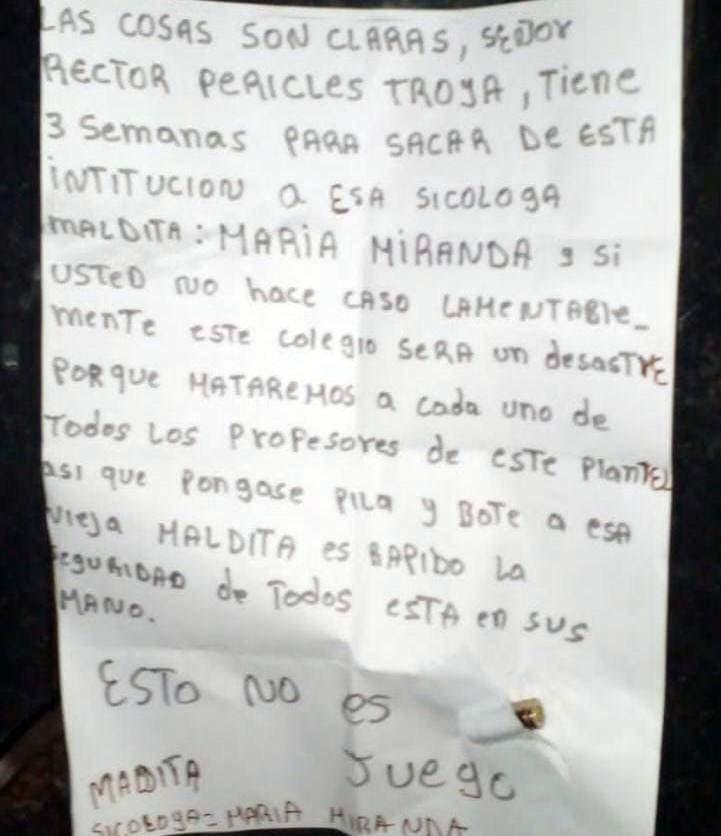 LAS COSAS SON CLARAS, SEÑOR
RECTOR PERICLES TROYA, TIENE
3 Semanas PARA SACAR De ESTA
iNTITUCION a ESA SICOLOgA
MALDITA: MARIA MiRANDA y Si
USTeD NO hace CASO LAMeNTABle-
menTe esTe colegio SeRA un desasTre
PORque MATAReMOS a cada uno de
Todos Los Profesores de esTe PlanTEL
asi que Pongase PILa y BOTe a esA
vieja MALDITA es RAPIDO La
seguRIDAD de Todos esTA en sus
MANO.
ESTO NO es
Juego
MADITA
SICOLOgA= MARIA MIRANDA